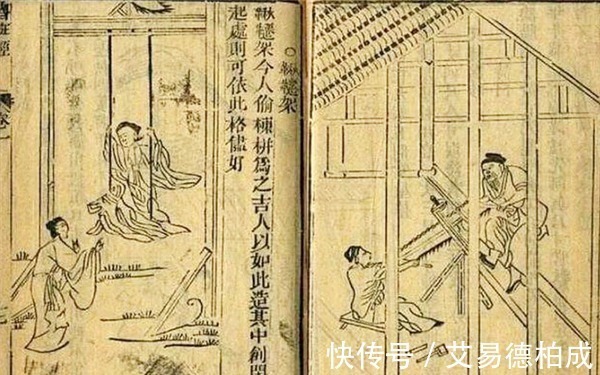 ○鞦韆架
鞦韆架今人偷棟栟爲之吉人以如此造其中創
起處則可依此格儘好
班經
卷一
快传号 / 艾易德柏成